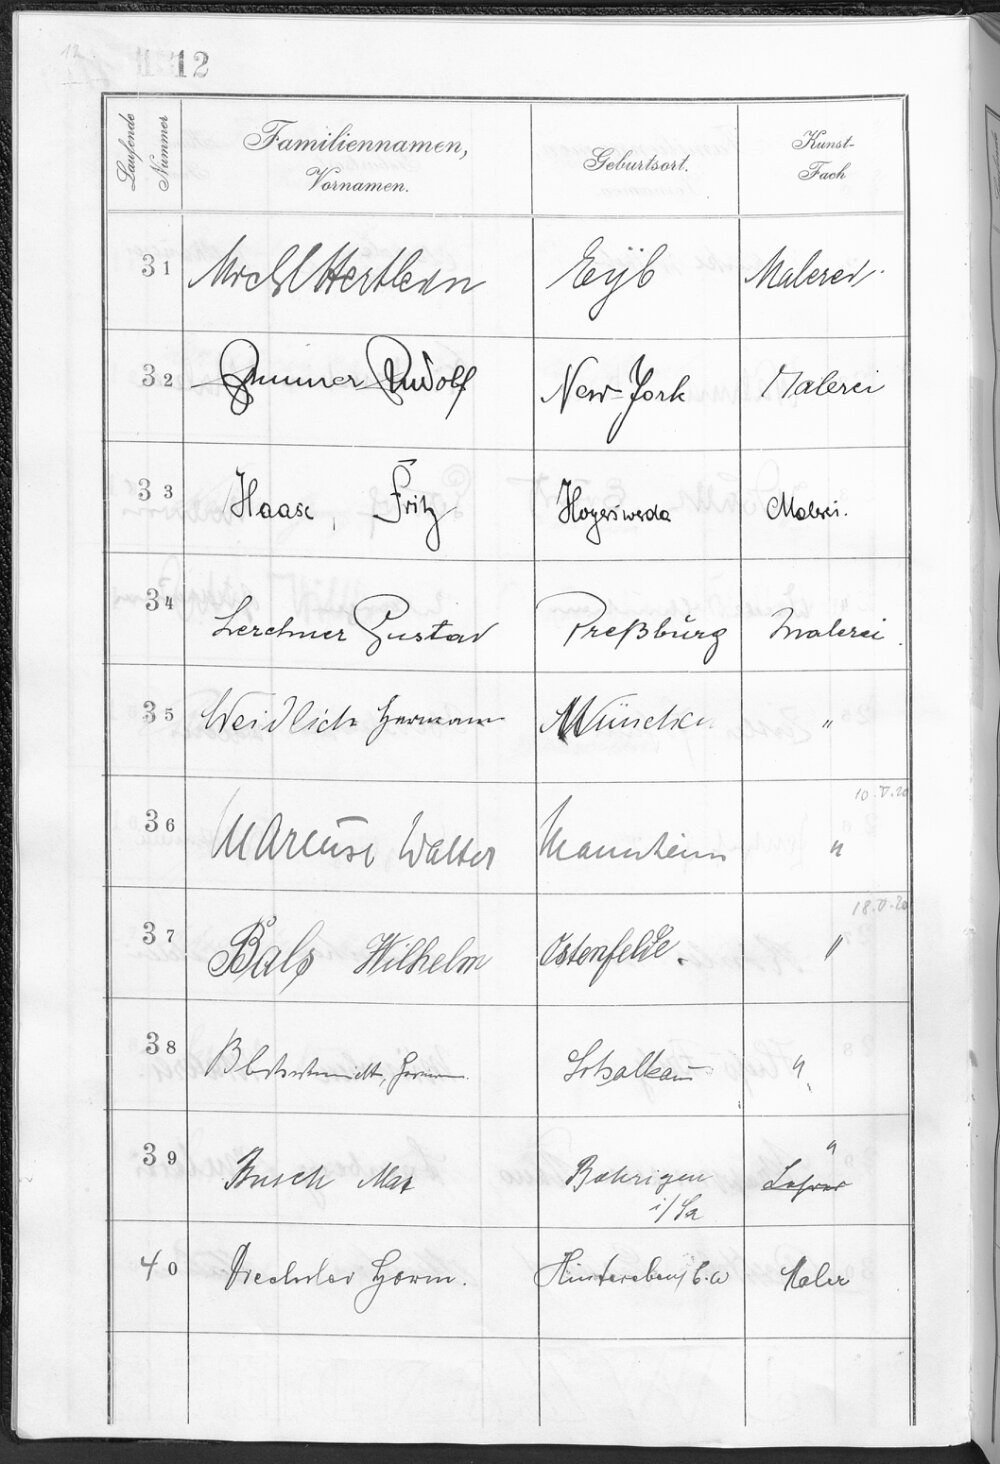 12
Laufende Nummer
Familiennamen,
Vornamen.
Geburtsort.
Kunst-
Fach
31 Hertlein Eyb Malerei
32 Rudolf New-York Malerei
33 Haase, Fritz Hoyerswerda Malerei.
34 Lerchner Gustav Preßburg Malerei.
35 Weidlich Hermann München "
10.V.20
36 Marcuse Walter Mannheim "
18.V.20
37 Bals Wilhelm Ostenfelde. "
38 Schalkau "
39 Busch Max Bohrigen "
i/Sa Lehrer
40 Drechsler Herm. Maler